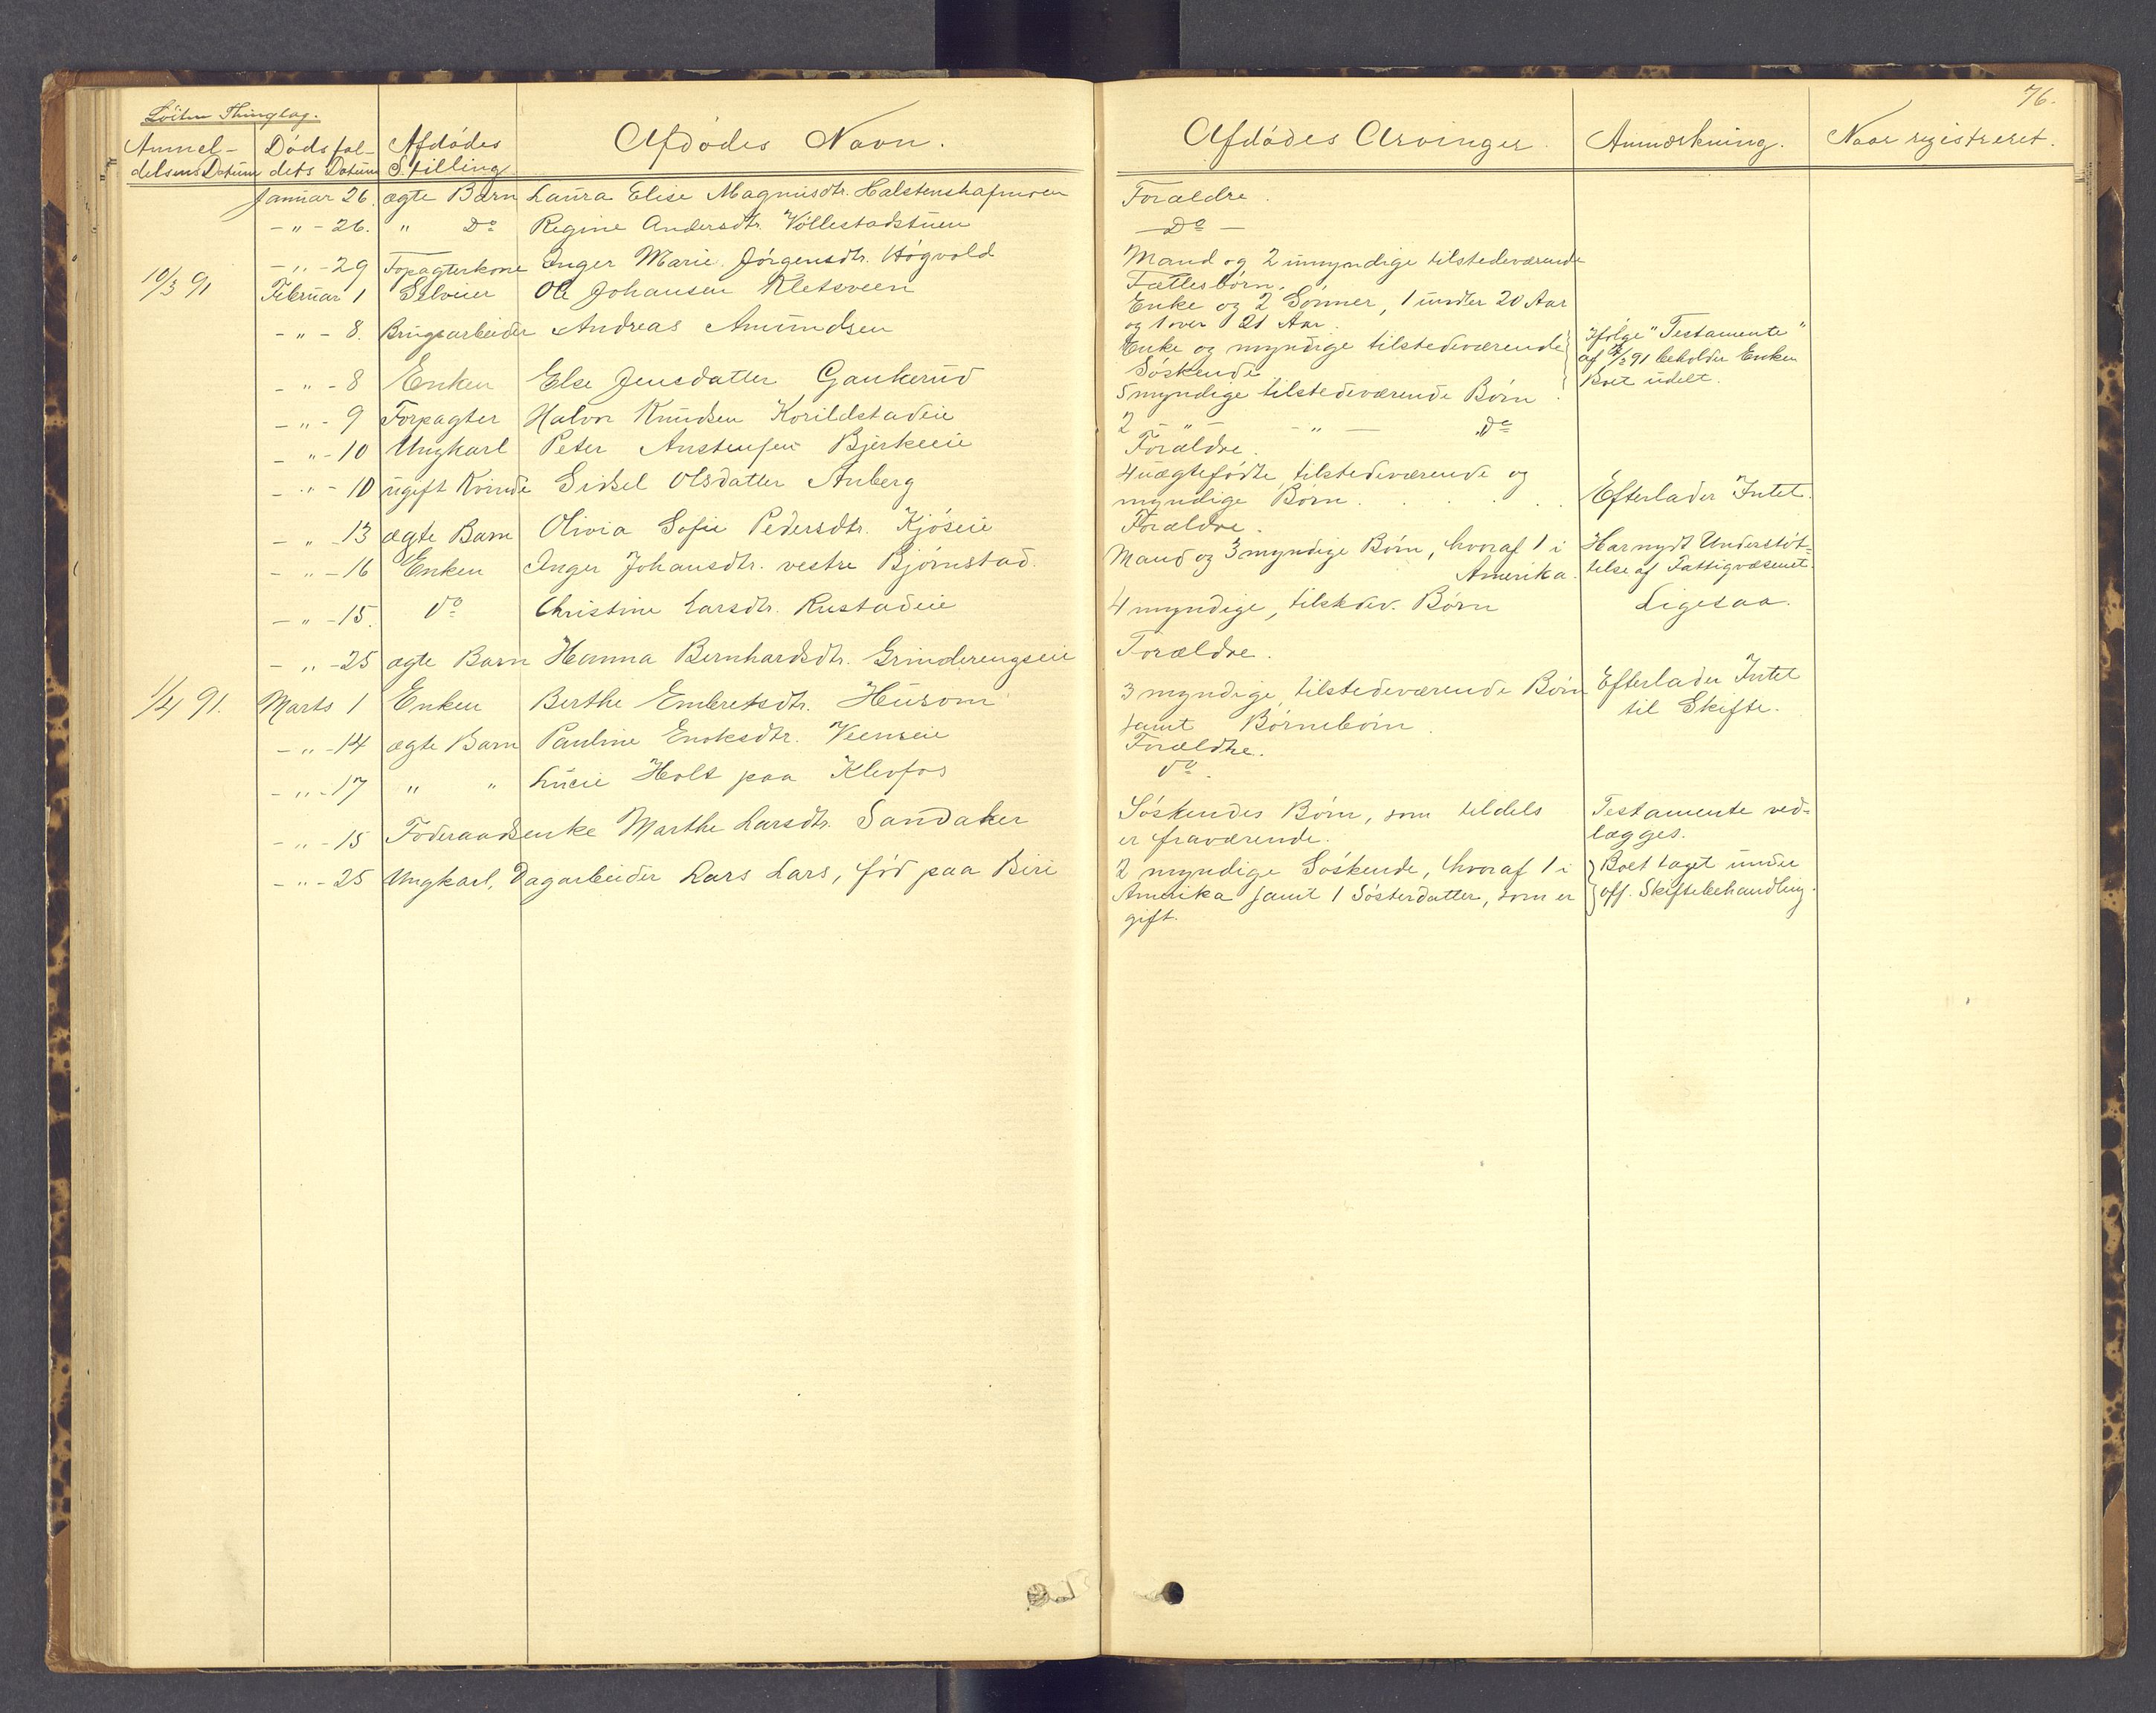 76.
Löiten Thinglag.
Anmel- Dödsfal- Afdödes Afdödes Navn. Afdödes Arvinger. Anmærkning. Naar registreret.
delsens Datum dets Datum Stilling
Januar 26. ægte Barn Laura Elise Magnusdtr. Halstenshafmoen Forældre.
- " - 26. " Do Regine Andersdtr. Völlestadstuen - Do -
- " - 29 Fopagterkone Inger Marie Jörgensdtr. Högvold Mand og 2 umyndige tilstedeværende
Fællesbörn.
10/3 91 Februar 1 Selveier Ole Johansen Kletsveen Enke og 2 Sönner, 1 under 20 Aar
og 1 over 21 Aar.
- " - 8. Brugsarbeider Andreas Amundsen Enke og myndige tilstedeværende Ifölge "Testamente"
Söskende. af /3 91 beholder Enken
Boet udelt.
- " - 8 Enken Else Jensdatter Gaukerud 5 myndige tilstedeværende Börn.
- " - 9 Forpagter Halvor Knudsen Korildstadeie 2 - " - - " - Do
- " - 10 Ungkarl Peter Austensen Bjerkeeie Forældre.
- " - 10 ugift Kvinde Sidsel Olsdatter Aaberg 4 uægtefödte, tilstedeværende og
myndige Börn. . . . Efterlader Intet.
- " - 13 ægte Barn Olivia Sofie Pedersdtr. Kjöseie Forældre.
- " - 16 Enken Inger Johansdtr. vestre Bjørnstad. Mand og 3 myndige Börn, hvoraf 1 i Har nydt Understöt-
Amerika. telse af Fattigvæsenet.
- " - 15. do Christine Larsdtr. Rustadeie 4 myndige, tilstedev. Börn Ligesaa.
- " - 25 ægte Barn Hanna Bernhardsdtr. Grinderengseie Forældre.
1/4 91. Marts 1 Enken Berthe Embretsdtr. Husom 3 myndige, tilstedeværende Börn Efterlader Intet
samt Börnebörn. til Skifte.
- " - 14 ægte Barn Pauline Enoksdtr. Veenseie Forældre.
- " - 17 " " Lucie Holt paa Klevfos do.
- " - 15 Föderaadsenke Marthe Larsdtr. Sandaker Söskendes Börn, som tildels Testamente ved-
er fraværende. lægges.
- " - 25 Ungkarl, Dagarbeider Lars Lars, föd paa Biri 2 myndige Söskende, hvoraf 1 i Boet taget under
Amerika samt 1 Sösterdatter, som er off. Skiftebehandling.
gift.